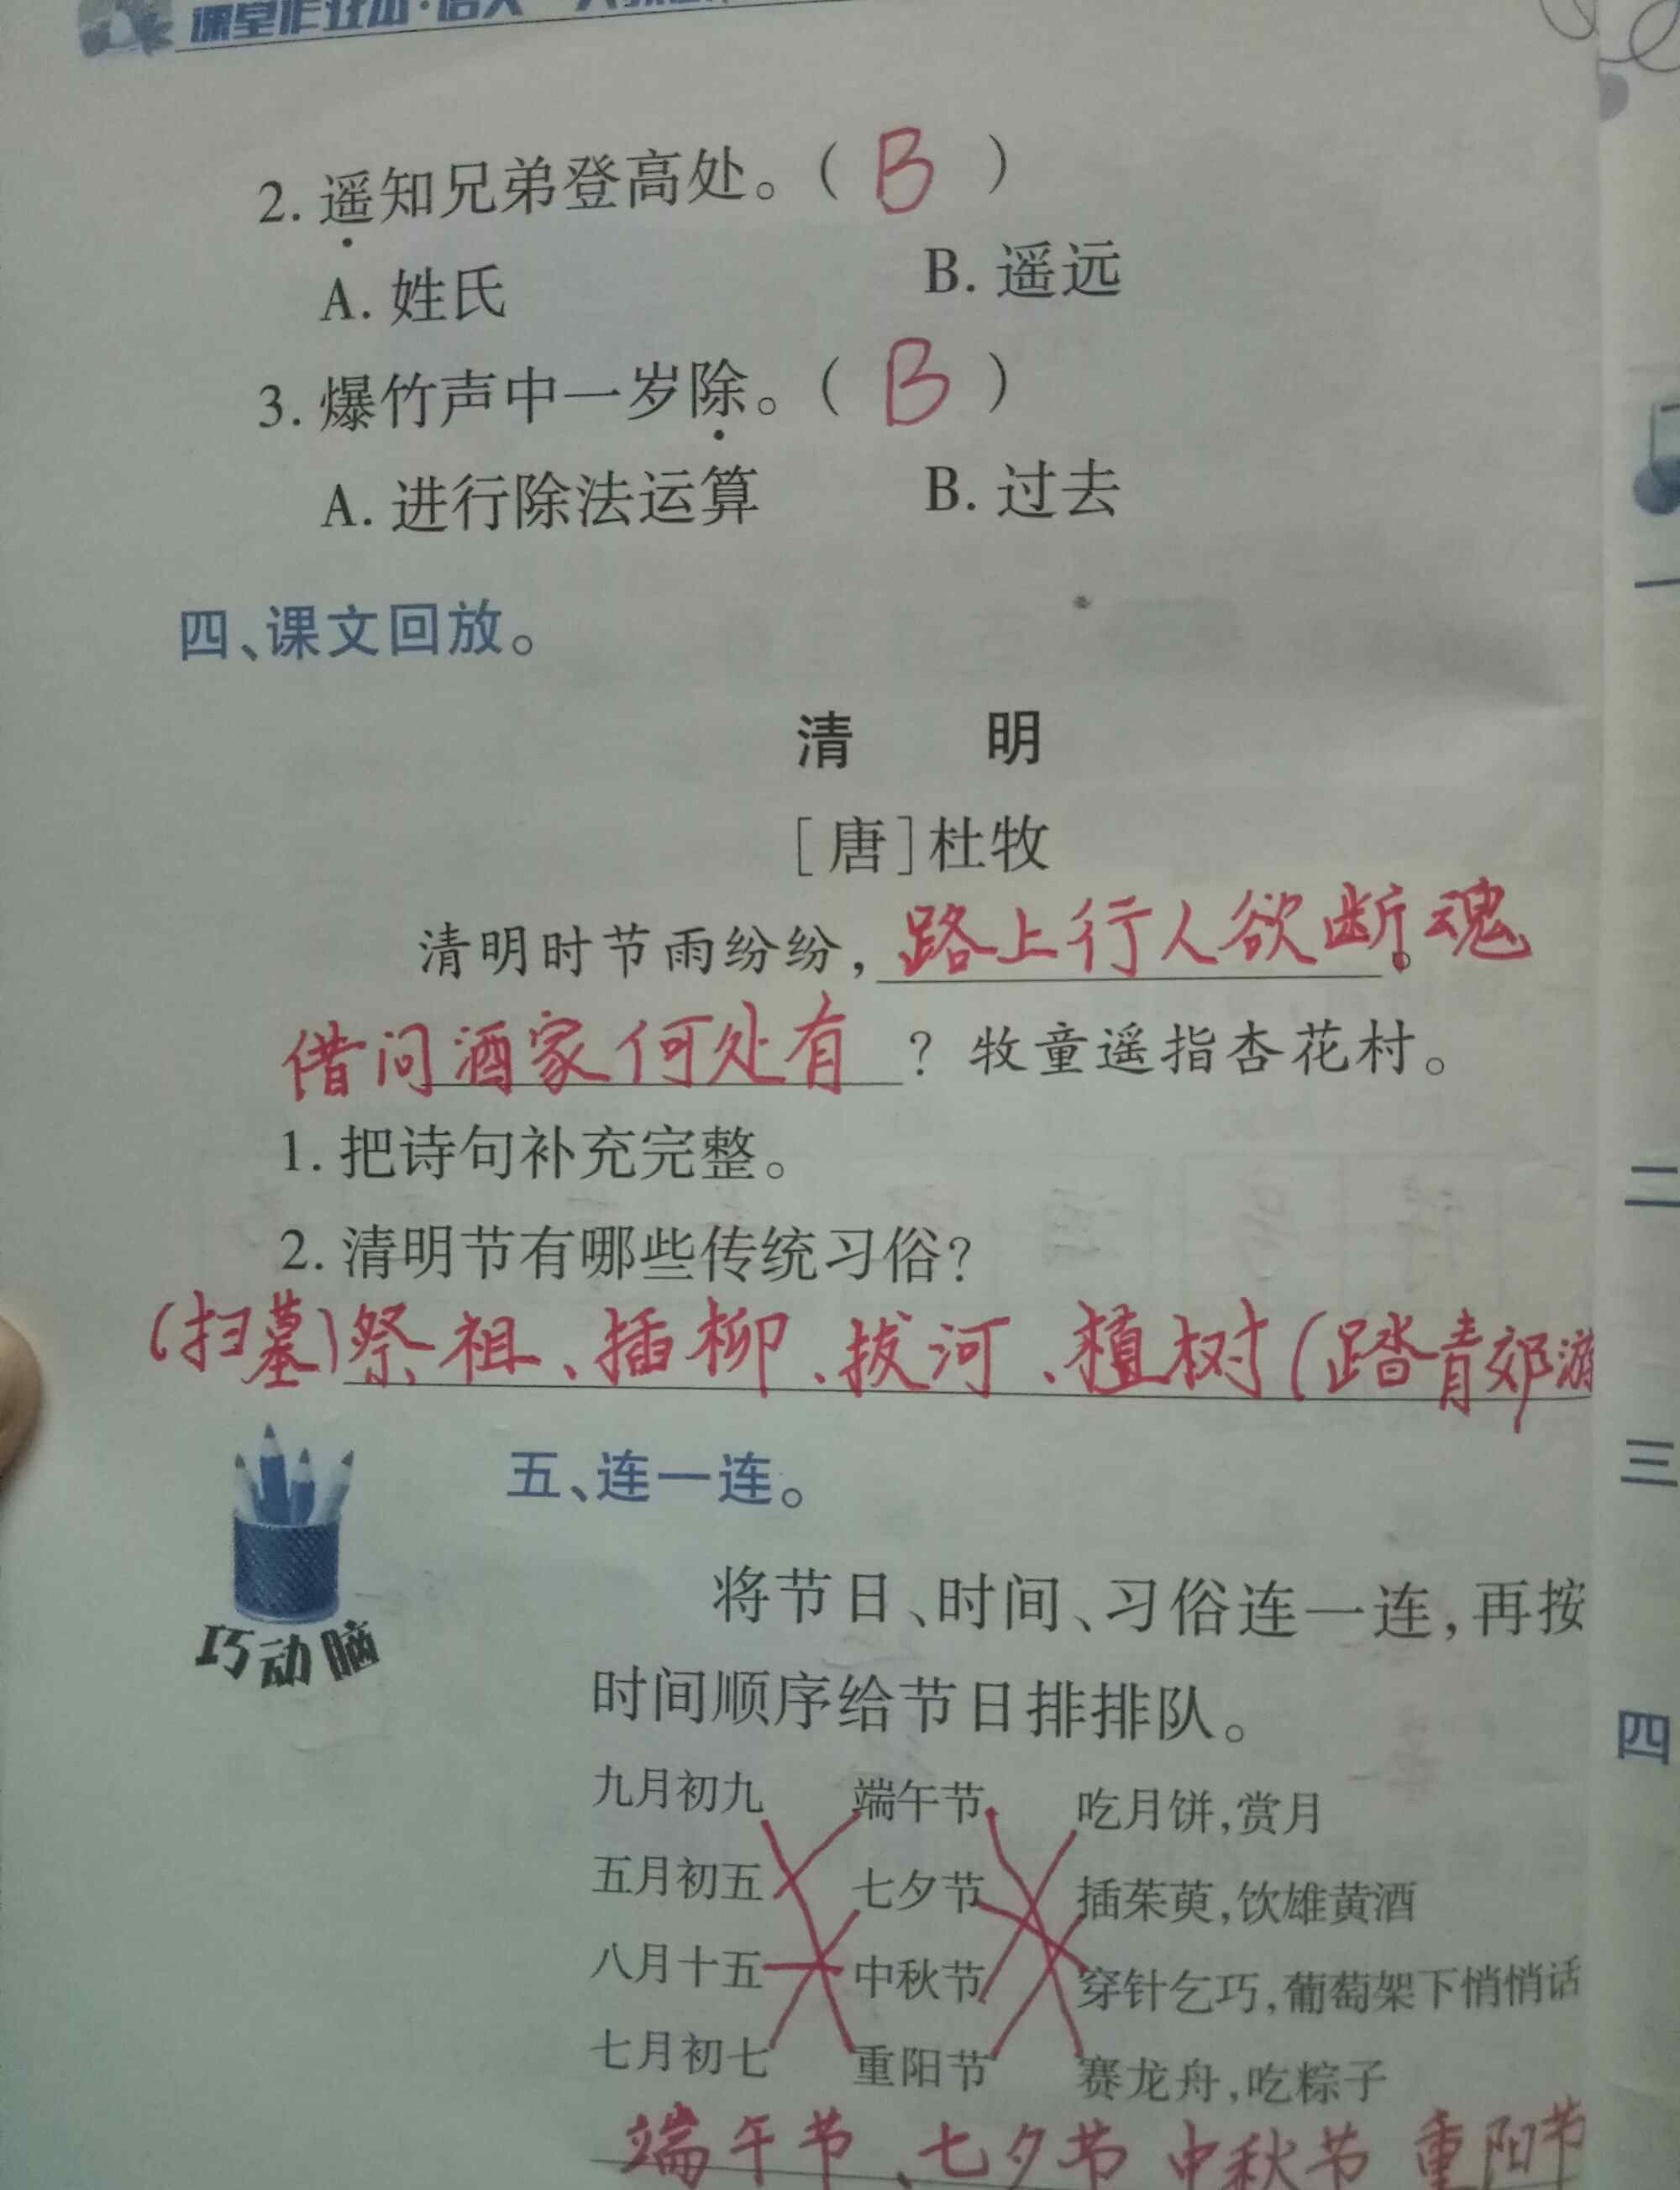 课堂作业本·语文
2. 遥知兄弟登高处。( B )
A. 姓氏 B. 遥远
3. 爆竹声中一岁除。( B )
A. 进行除法运算 B. 过去
一
四、课文回放。
清 明
[唐]杜牧
清明时节雨纷纷,路上行人欲断魂。
借问酒家何处有?牧童遥指杏花村。
1. 把诗句补充完整。
二
2. 清明节有哪些传统习俗?
(扫墓)祭祖、插柳、拔河、植树(踏青郊游
三
五、连一连。
将节日、时间、习俗连一连,再按
巧动脑
时间顺序给节日排排队。
四
九月初九 端午节 吃月饼,赏月
五月初五 七夕节 插茱萸,饮雄黄酒
八月十五 中秋节 穿针乞巧,葡萄架下悄悄话
七月初七 重阳节 赛龙舟,吃粽子
端午节、七夕节 中秋节 重阳节